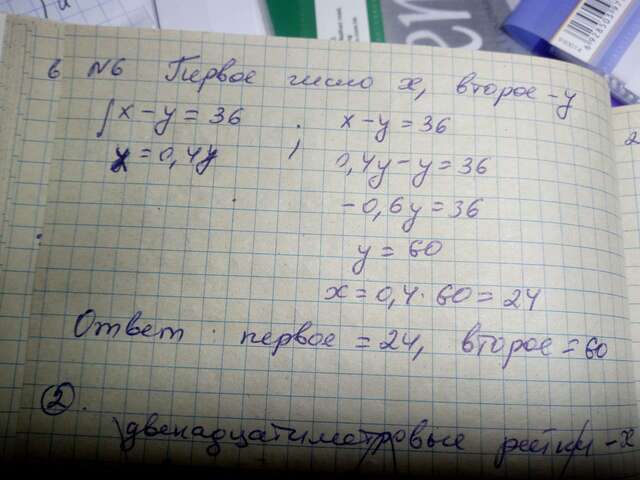 6 №6 Первое число x, второе - y
{ x - y = 36 ; x - y = 36
x = 0,4y 0,4y - y = 36
-0,6y = 36
y = 60
x = 0,4 · 60 = 24
Ответ: первое = 24, второе = 60
2.
двенадцатиметровые рейки - x